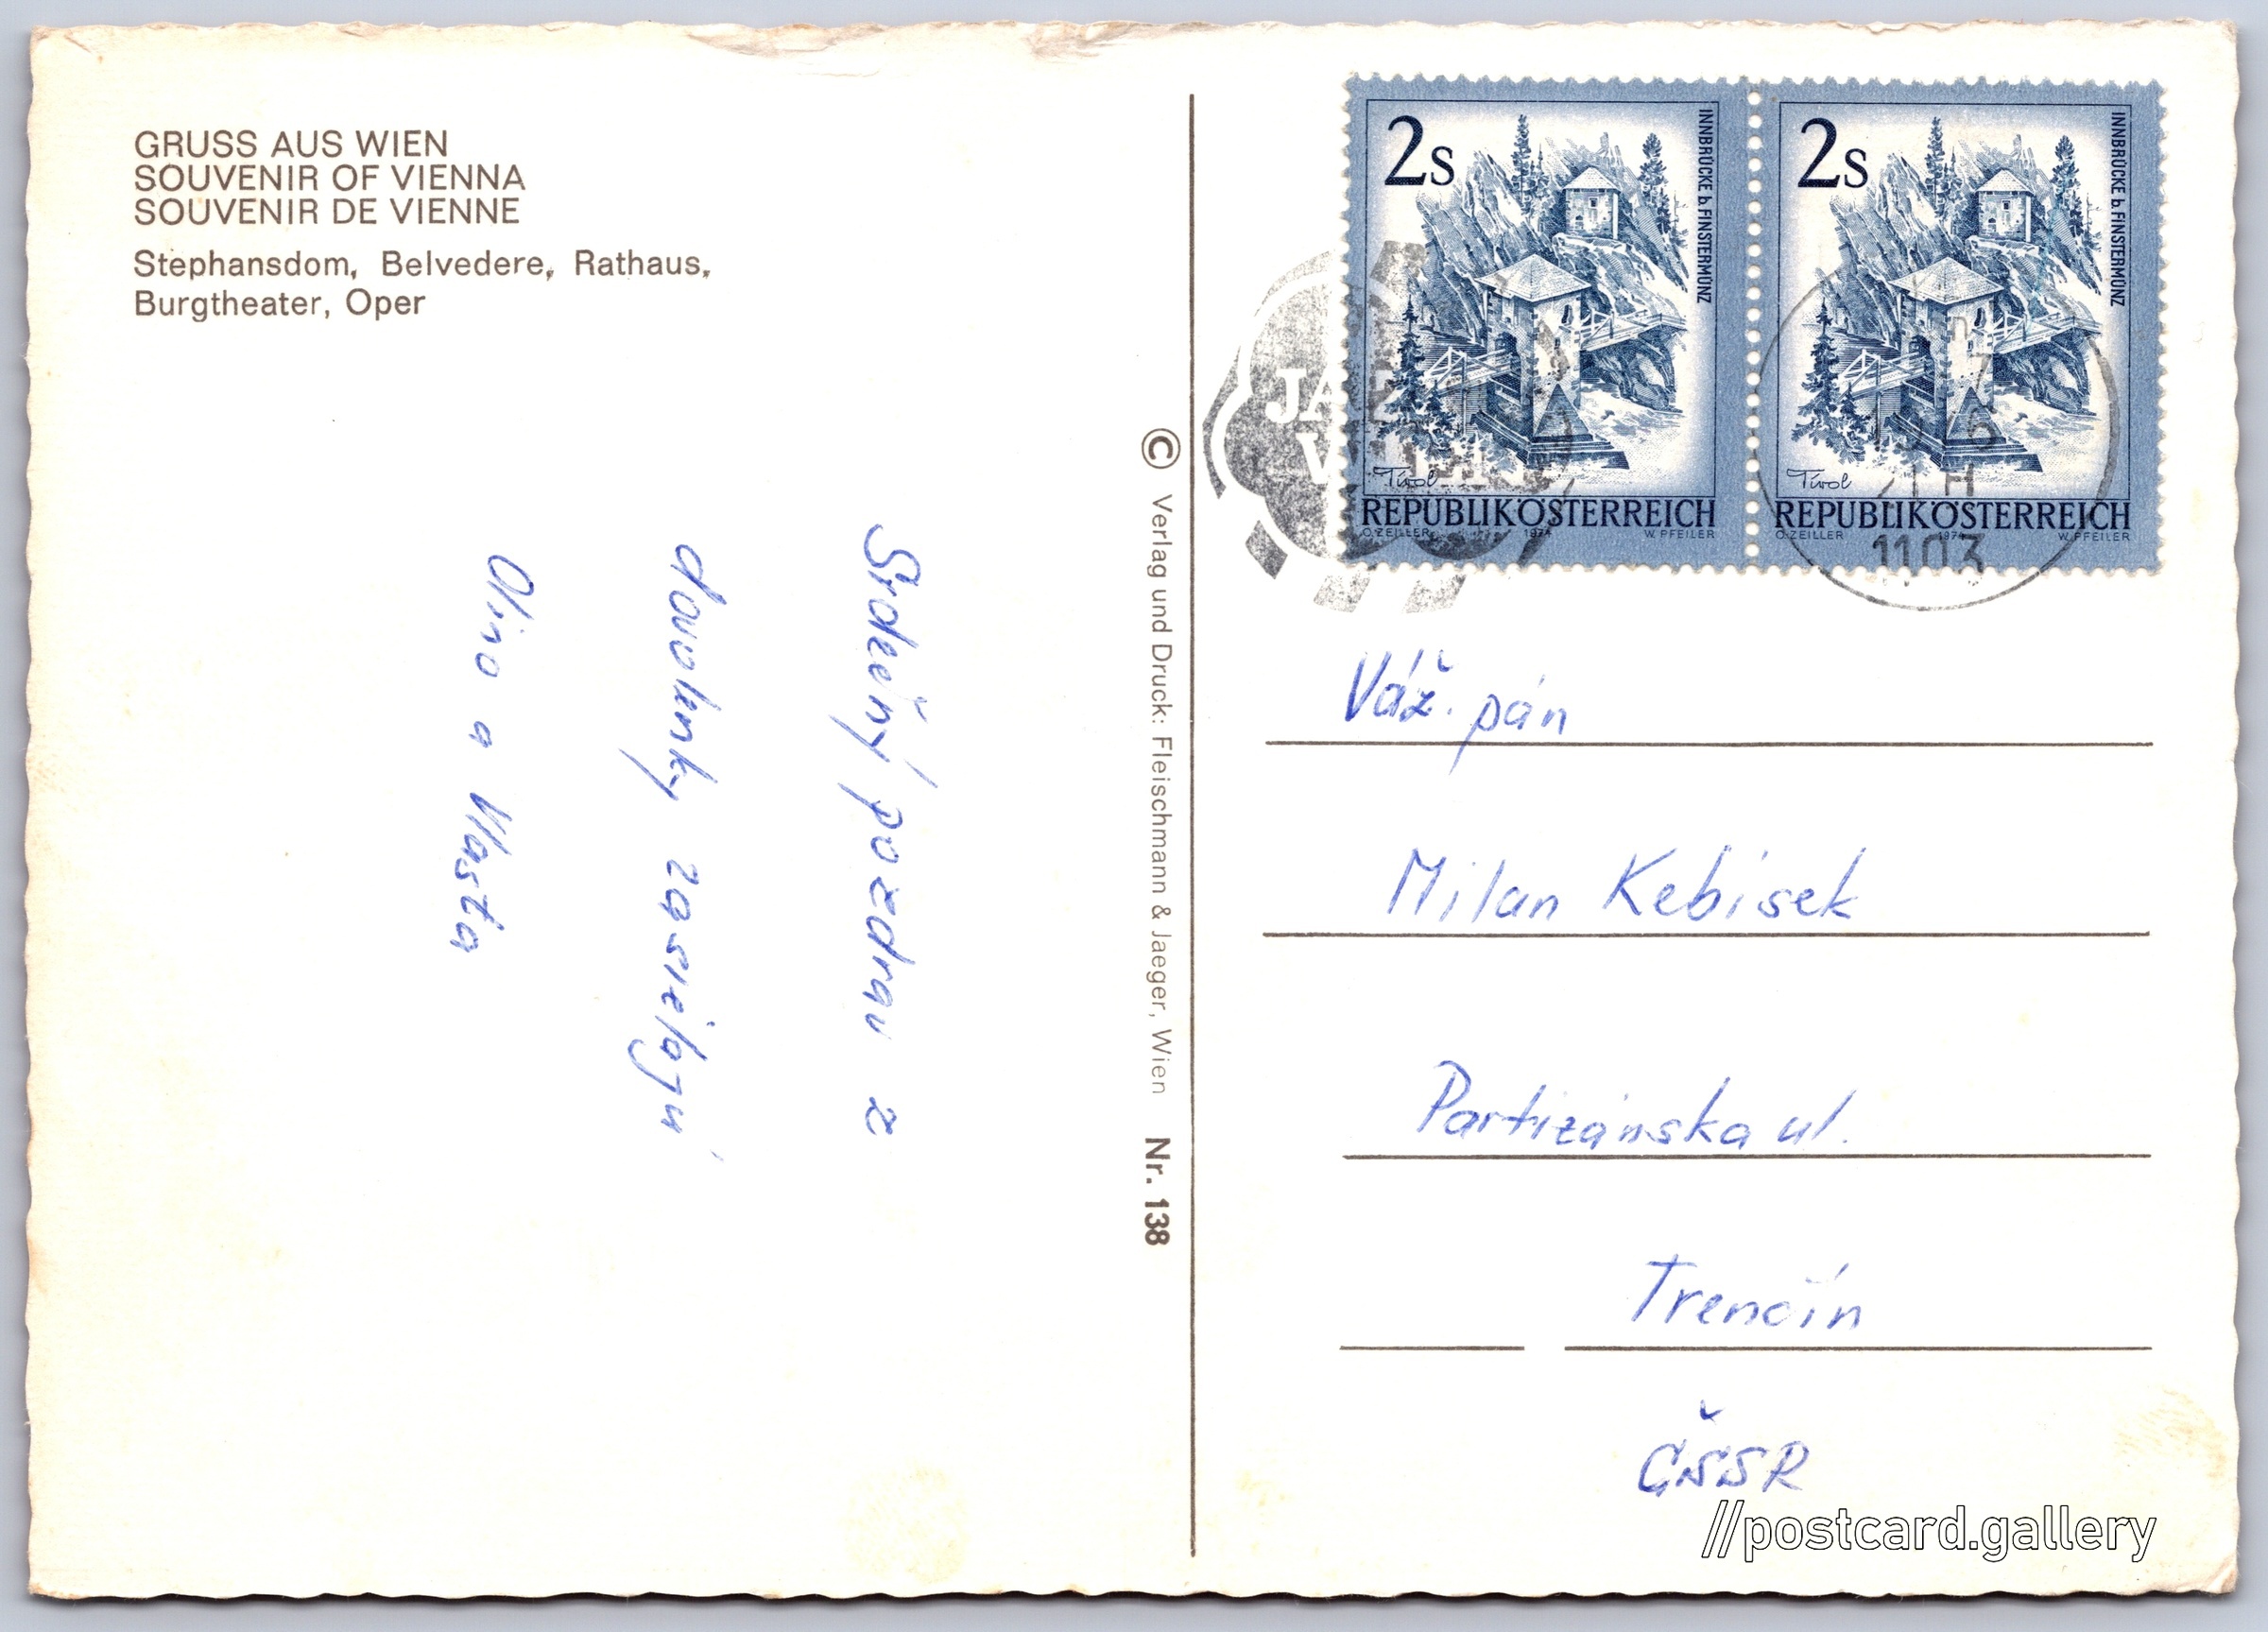 GRUSS AUS WIEN
SOUVENIR OF VIENNA
SOUVENIR DE VIENNE
Stephansdom, Belvedere, Rathaus,
Burgtheater, Oper
Srdečný pozdrav z
dovolenky zasielajú
Olino a Vlasta
© Verlag und Druck: Fleischmann & Jaeger, Wien Nr. 138
2s
INNBRÜCKE b. FINSTERMÜNZ
Tirol
REPUBLIK ÖSTERREICH
O. ZEILLER 1974 W. PFEILER
2s
INNBRÜCKE b. FINSTERMÜNZ
Tirol
REPUBLIK ÖSTERREICH
O. ZEILLER 1974 W. PFEILER
1103
Váž. pán
Milan Kebísek
Partizánska ul.
Trenčín
ČSSR
//postcard.gallery